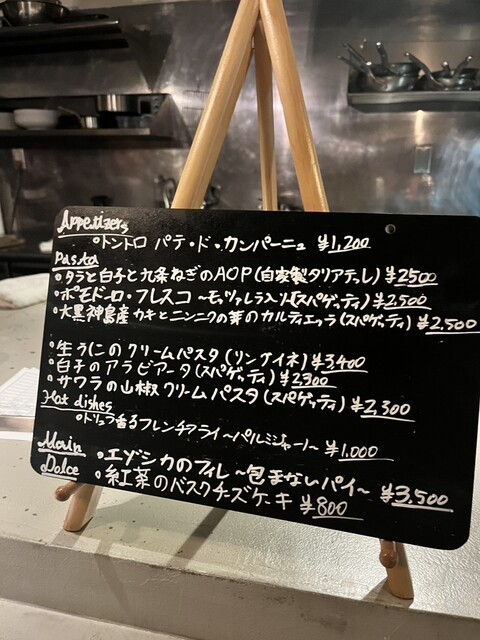 Appetizers
・トントロ パテ・ド・カンパーニュ ¥1,200
Pasta
・タラと白子と九条ねぎのAOP(自家製タリアテッレ) ¥2500
・ポモドーロ・フレスコ ～モッツァレラ入り(スパゲッティ) ¥2,500
・大黒神島産 カキとニンニクの芽の カルティエッラ(スパゲッティ) ¥2,500
・生うにの クリームパスタ(リングイネ) ¥3,400
・白子のアラビアータ(スパゲッティ) ¥2,300
・サワラの山椒クリームパスタ(スパゲッティ) ¥2,300
Hot dishes
・トリュフ香るフレンチフライ～パルミジャーノ～ ¥1,000
Main
・エゾシカのフィレ ～包まないパイ～ ¥3,500
Dolce
・紅茶のバスクチーズケーキ ¥800